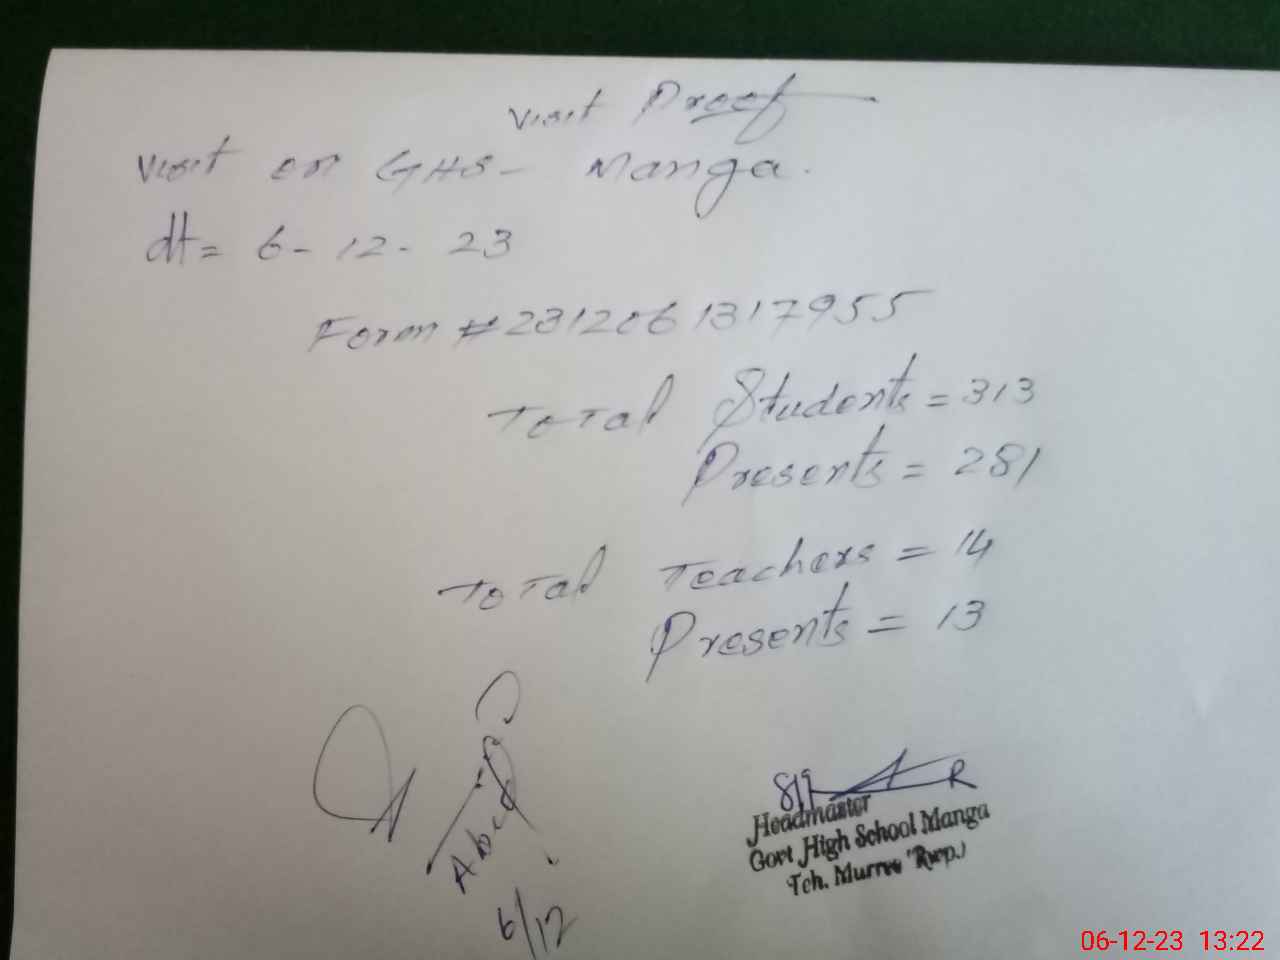 Visit Proof
Visit on GHS - Manga.
dt = 6 - 12 - 23
Form # 231206 1317955
Total Students = 313
Presents = 281
Total Teachers = 14
Presents = 13
6/12
Headmaster
Govt High School Manga
Teh. Murree (Rwp.)
06-12-23 13:22